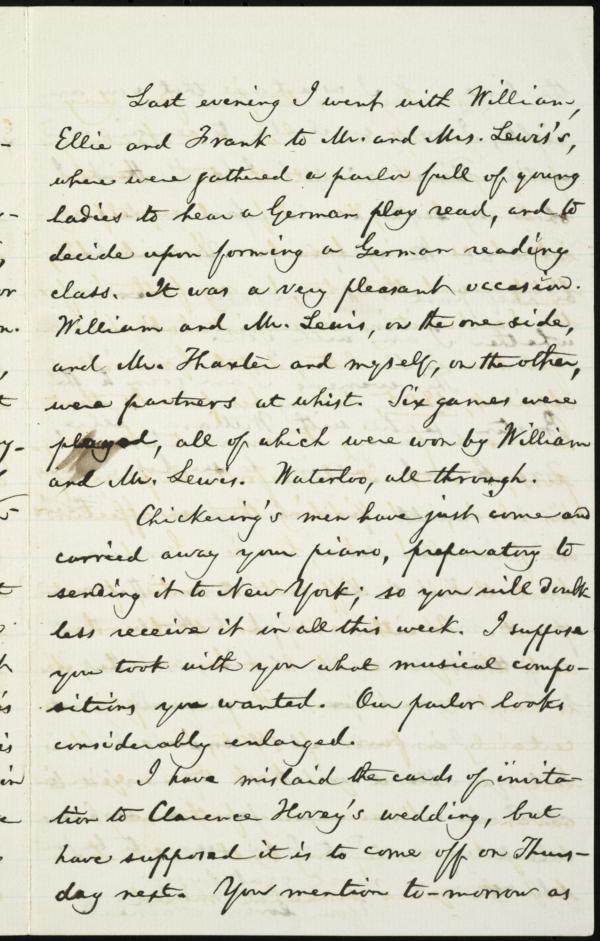 Last evening I went with William,
Ellie and Frank to Mr. and Mrs. Lewis's,
where were gathered a parlor full of young
ladies to hear a German play read, and to
decide upon forming a German reading
class. It was a very pleasant occasion.
William and Mr. Lewis, on the one side,
and Mr. Thaxter and myself, on the other,
were partners at whist. Six games were
played, all of which were won by William
and Mr. Lewis. Waterloo, all through.
Chickering's men have just come and
carried away your piano, preparatory to
sending it to New York; so you will doubt-
less receive it in all this week. I suppose
you took with you what musical compo-
sitions you wanted. Our parlor looks
considerably enlarged.
I have mislaid the cards of invita-
tion to Clarence Hovey's wedding, but
have supposed it is to come off on Thurs-
day next. You mention to-morrow as